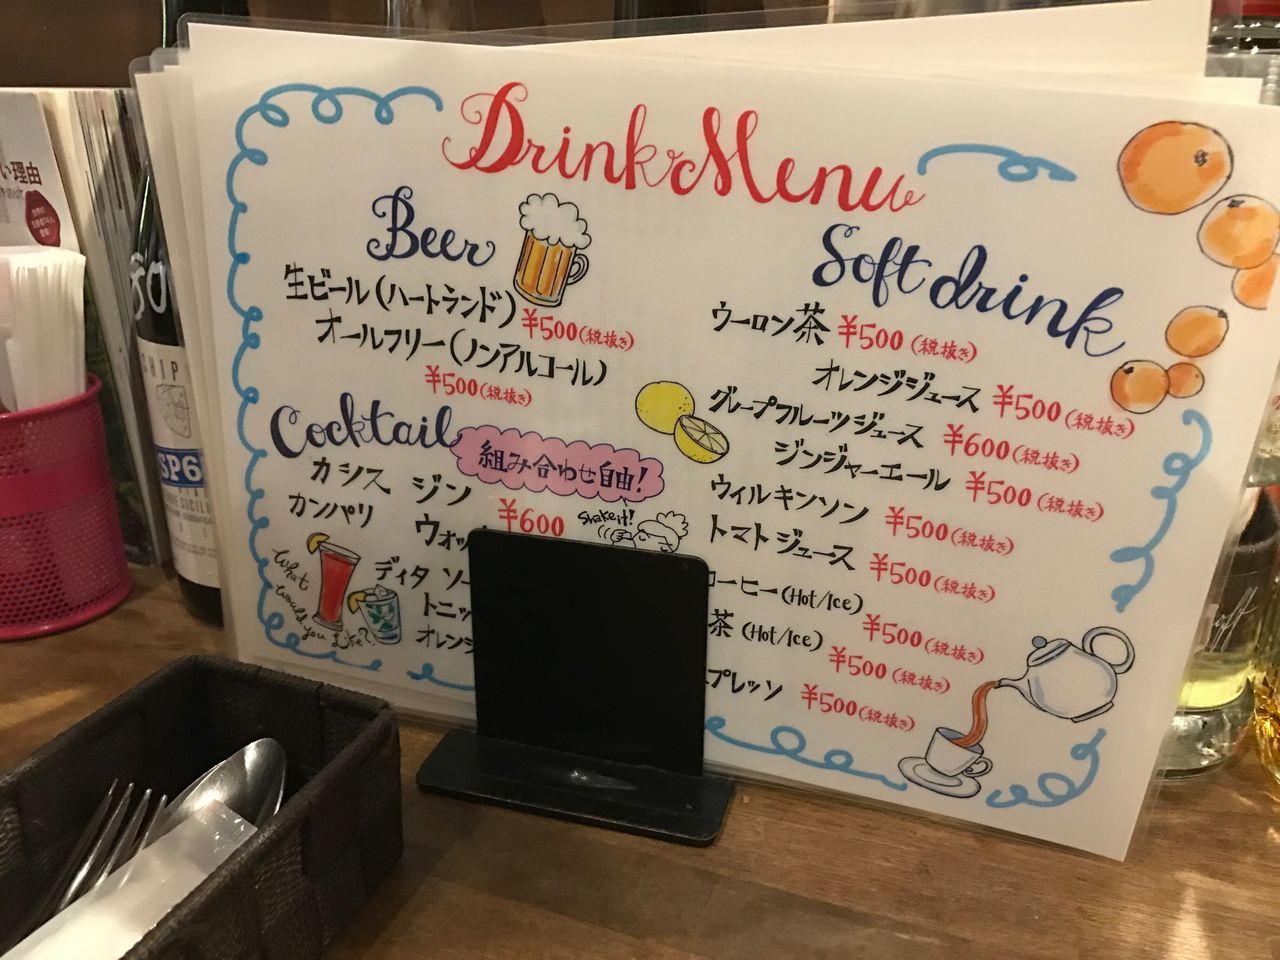 Drink Menu
Beer
生ビール(ハートランド)
¥500(税抜き)
オールフリー(ノンアルコール)
¥500(税抜き)
Cocktail
組み合わせ自由!
カシス ジン
¥600
カンパリ
Shake it!
ディタ
What would you Like?
Soft drink
ウーロン茶 ¥500(税抜き)
オレンジジュース ¥500(税抜き)
グレープフルーツジュース ¥600(税抜き)
ジンジャーエール ¥500(税抜き)
ウィルキンソン ¥500(税抜き)
トマトジュース ¥500(税抜き)
ーヒー(Hot/Ice) ¥500(税抜き)
茶(Hot/Ice) ¥500(税抜き)
プレッソ ¥500(税抜き)
い理由
SP6